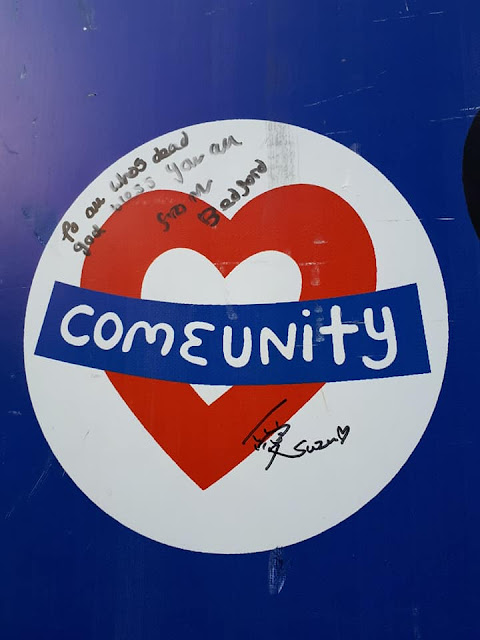 To all whos dead
god bless you all
from
Bedford
COMEUNITY
Suzu